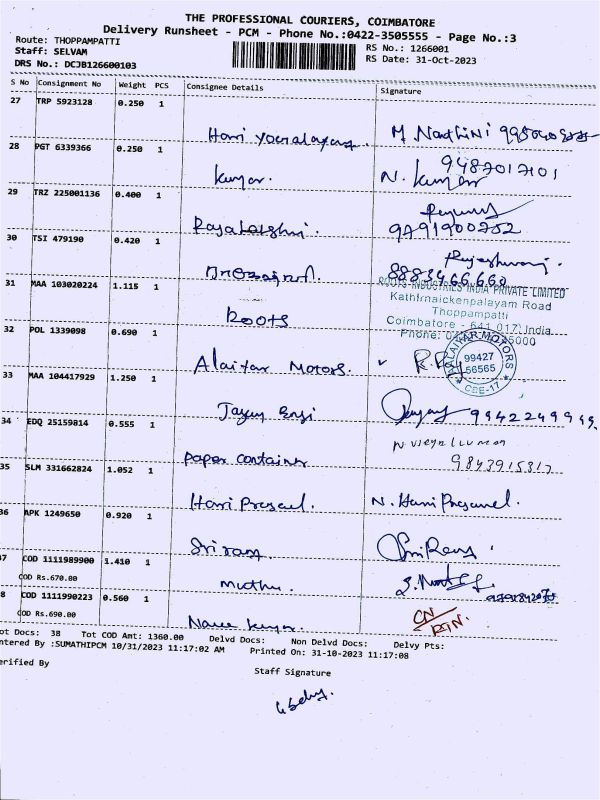 THE PROFESSIONAL COURIERS, COIMBATORE
Delivery Runsheet - PCM - Phone No.:0422-3505555 - Page No.:3
Route: THOPPAMPATTI
Staff: SELVAM
DRS No.: DCJB126600103
RS No.: 1266001
RS Date: 31-Oct-2023
S No Consignment No Weight PCS Consignee Details Signature
27 TRP 5923128 0.250 1
28 PGT 6339366 0.250 1
Kumar. N. Kumar 9487017101
29 TRZ 225001136 0.400 1
Rajalakshmi. 9791900752
30 TSI 479190 0.420 1
Rajeshwari
8883466660
31 MAA 103020224 1.115 1
Roots
ROOTS INDUSTRIES INDIA PRIVATE LIMITED
Kathirnaickenpalayam Road
Thoppampatti
Coimbatore - 641 017, India
Phone:
32 POL 1339098 0.690 1
Alaitar Motors.
ALAITAR MOTORS
99427
56565
CBE-17
33 MAA 104417929 1.250 1
9942249999.
34 EDQ 25159814 0.555 1
Paper container
N Vijayakumar
9843915317
35 SLM 331662824 1.052 1
Hari Prasad N. Hari Prasad.
36 APK 1249650 0.920 1
Sriram
37 COD 1111989900 1.410 1
COD Rs.670.00
muthu
38 COD 1111990223 0.560 1
COD Rs.690.00
CN/RTN.
Tot Docs: 38 Tot COD Amt: 1360.00 Delvd Docs: Non Delvd Docs: Delvy Pts:
Entered By :SUMATHIPCM 10/31/2023 11:17:02 AM Printed On: 31-10-2023 11:17:08
Verified By
Staff Signature